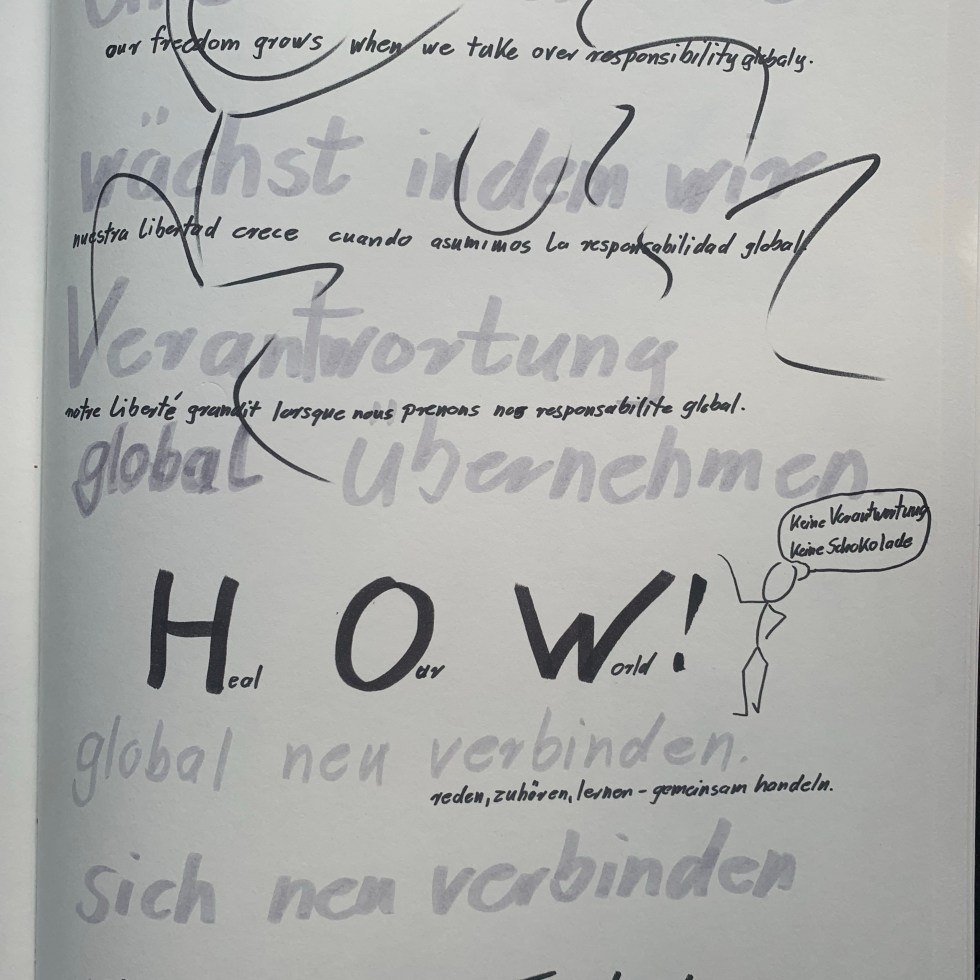 our freedom grows when we take over responsibility globaly.
wächst indem wir
nuestra libertad crece cuando asumimos la responsabilidad global.
Verantwortung
notre liberté grandit lorsque nous prenons nos responsabilite global.
global übernehmen
Keine Verantwortung
Keine Schokolade
Heal Our World!
global neu verbinden.
reden, zuhören, lernen - gemeinsam handeln.
sich neu verbinden